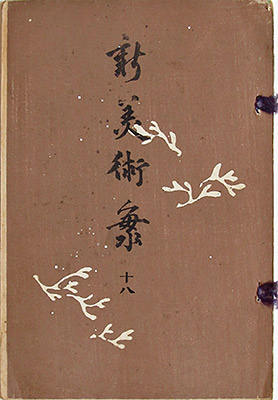 新美術海
十八